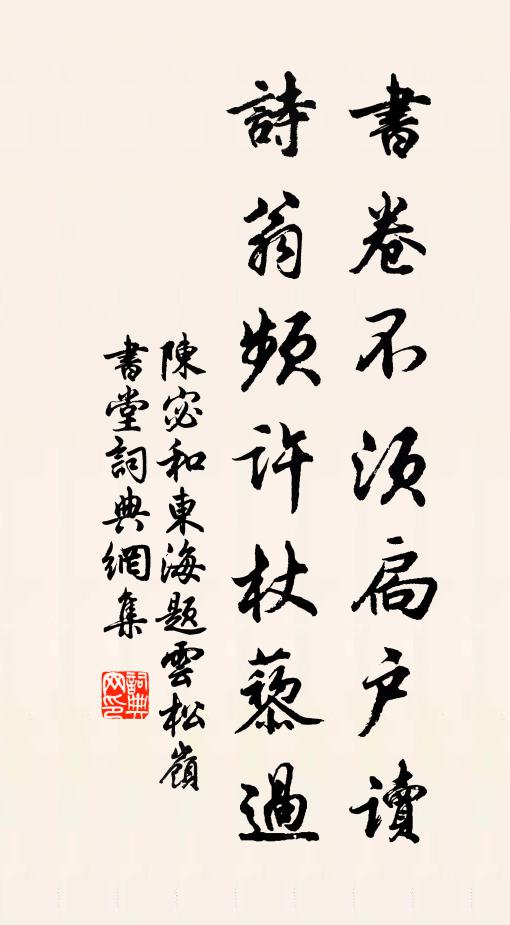 書卷不須扃户讀
詩翁頻許杖藜過
陳宓和東海題雲松嶺
書堂詞典網集
詞典网印